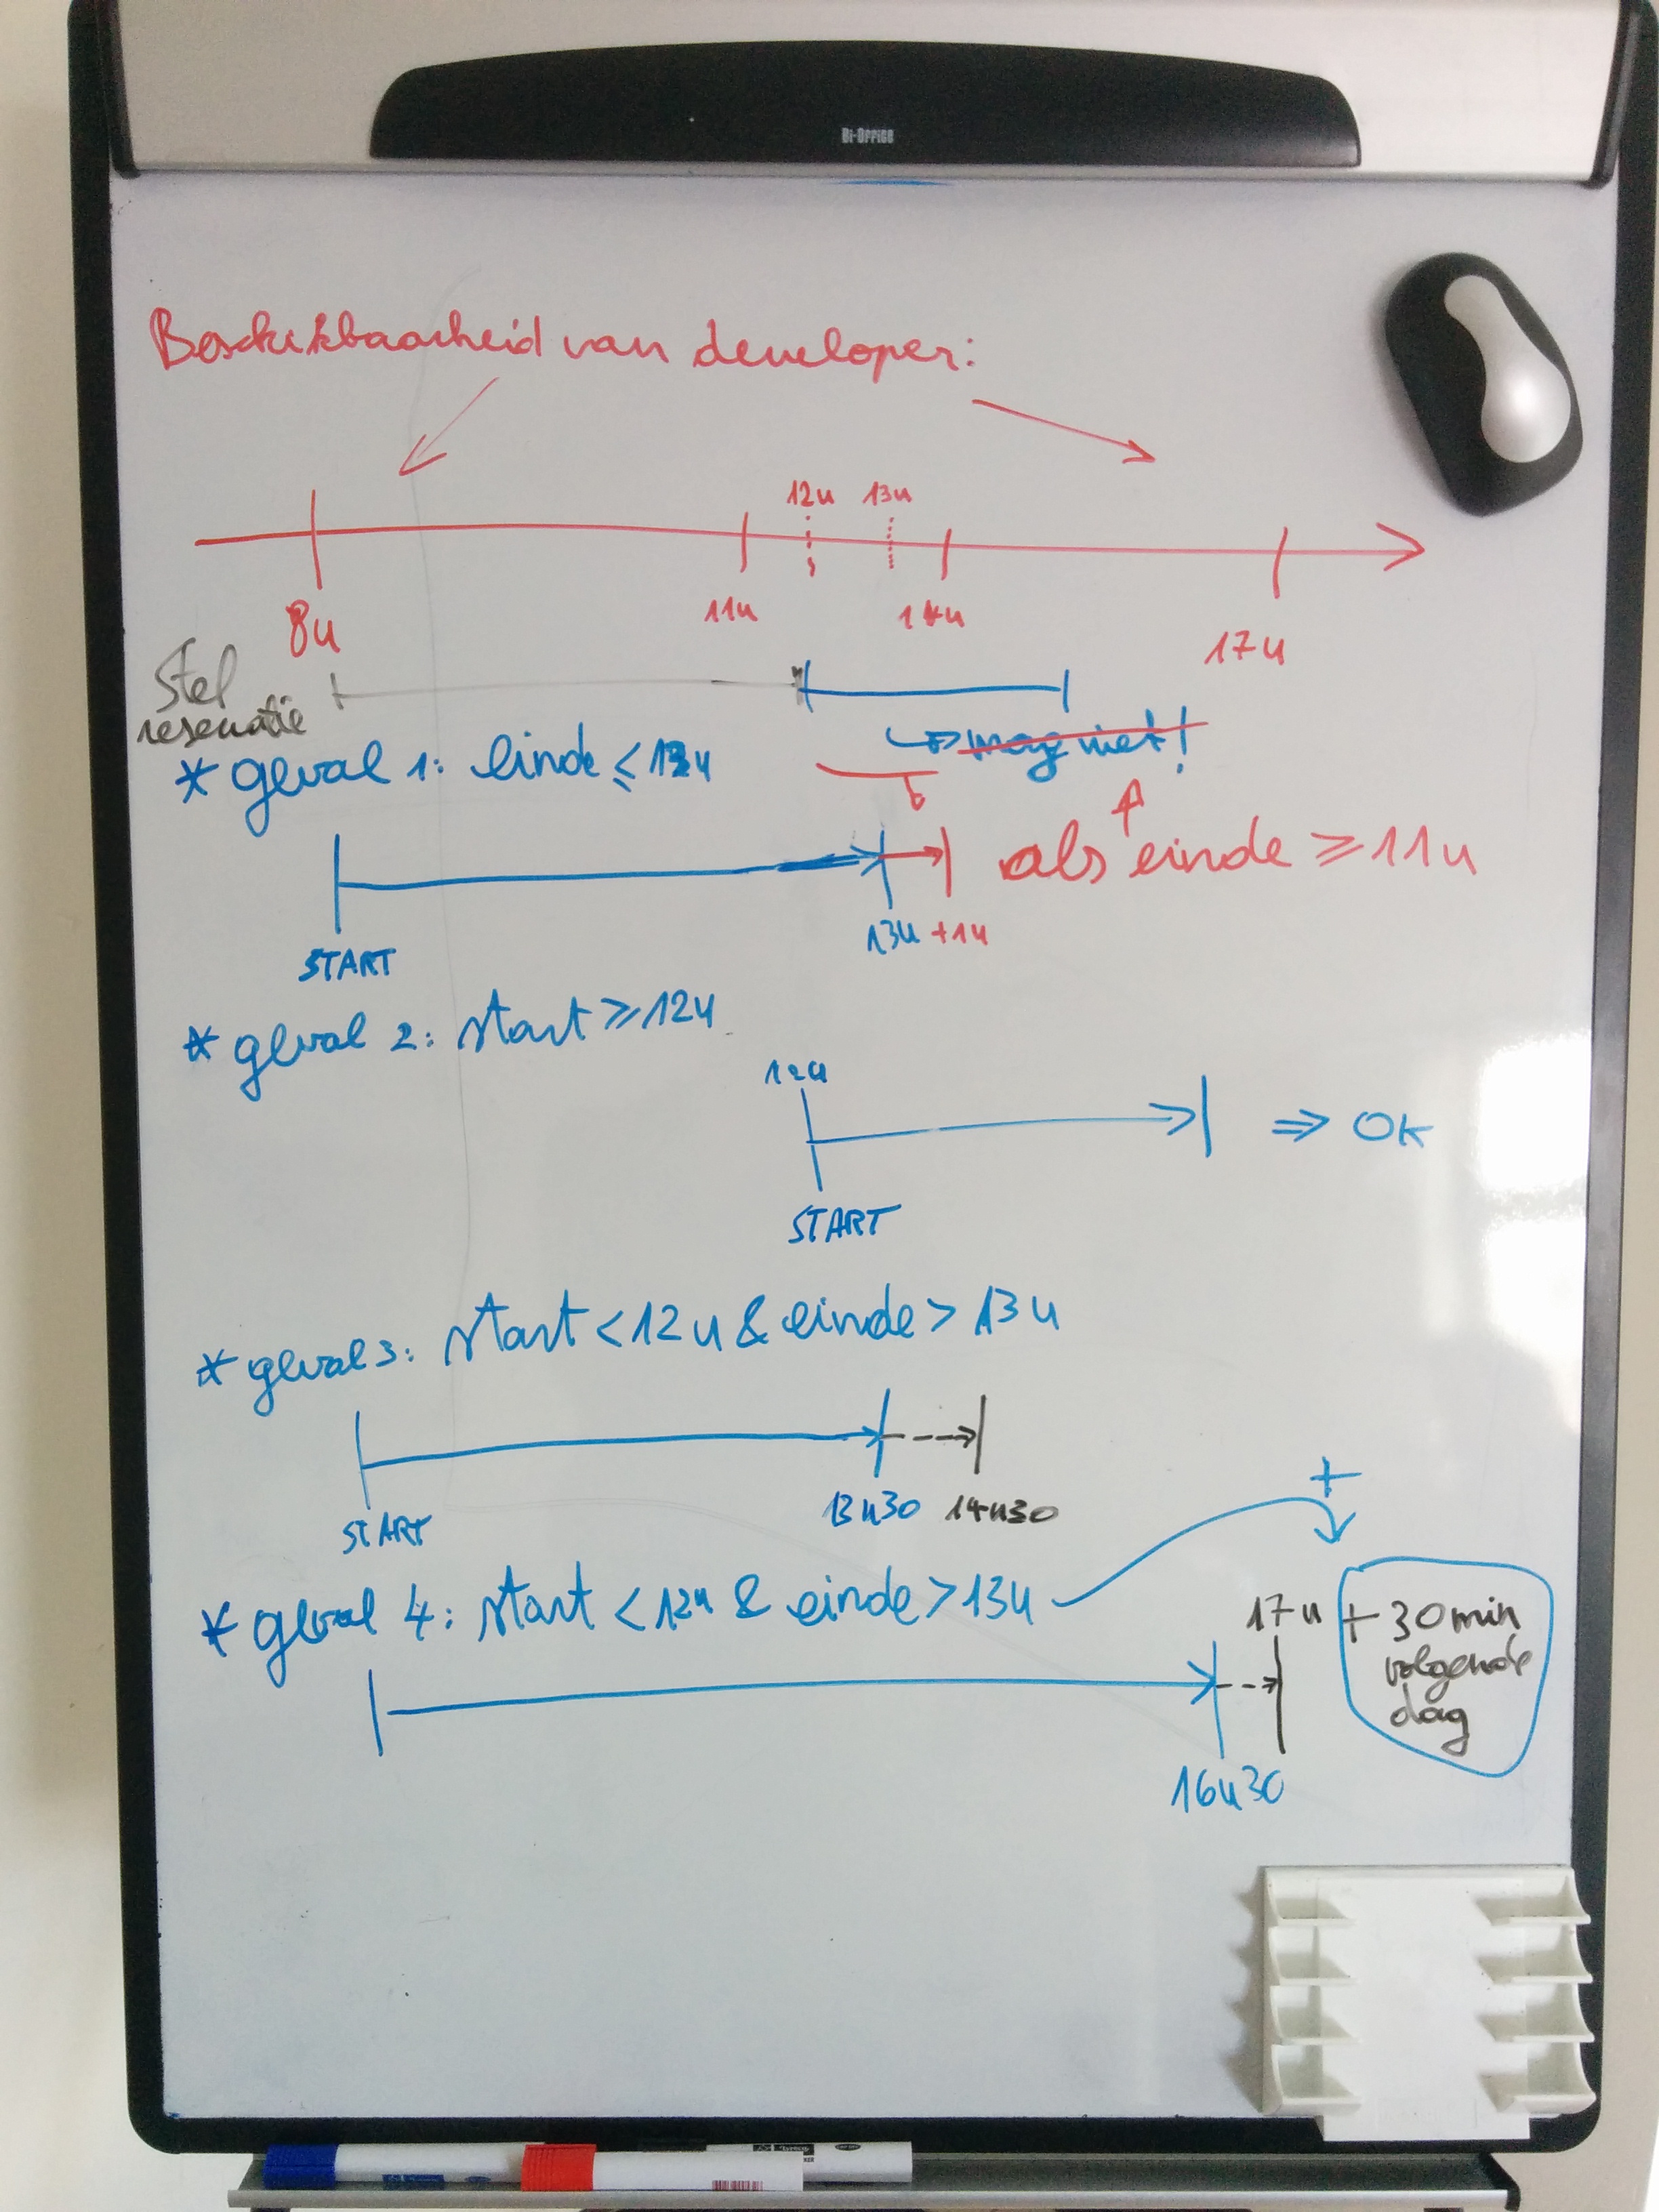 Bi-Office
Beschikbaarheid van developer:
12u 13u
8u 11u 14u 17u
Stel
reservatie
↳ mag niet!
* geval 1: einde ≤ 13u
als einde ≥ 11u
13u +1u
START
* geval 2: start ≥ 12u
12u
⇒ OK
START
* geval 3: start < 12u & einde > 13u
13u30 14u30
START
+
* geval 4: start < 12u & einde > 13u
17u + 30min
volgende
dag
16u30